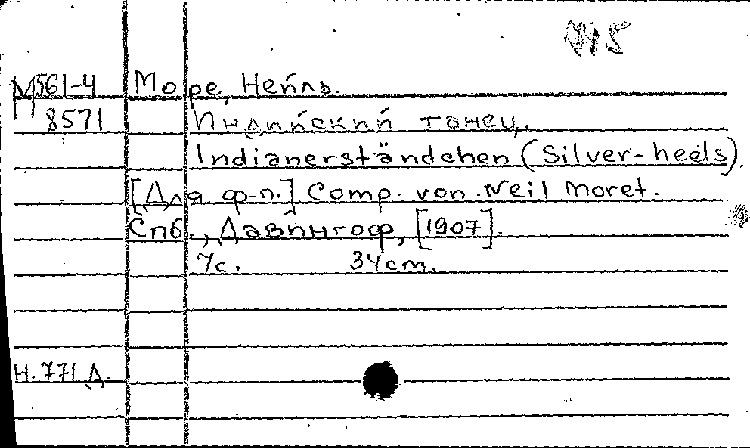 М561-4 Море, Нейль.
8571 Индийский танец.
Indianerständchen (Silver-heels).
[Для ф.п.] Comp. von Neil Moret.
Спб., Давингоф, [1907].
7с. 34см.
Н.771 Д.